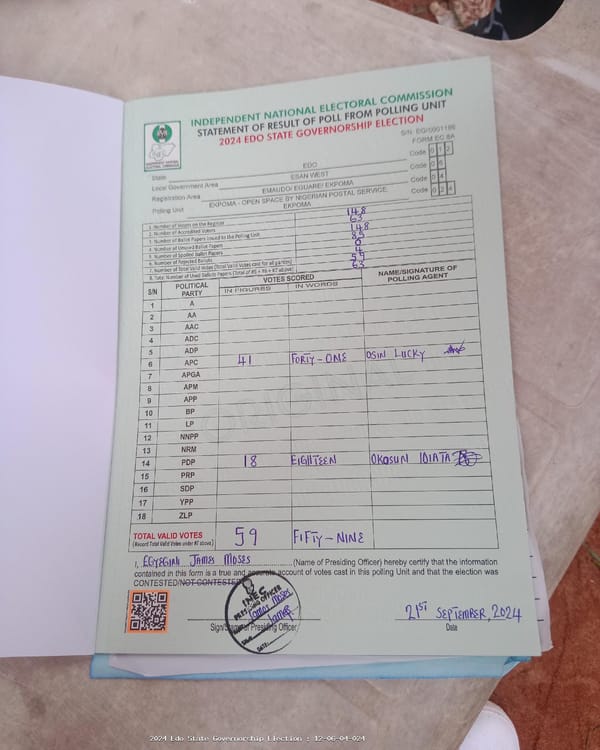 INDEPENDENT NATIONAL ELECTORAL COMMISSION
STATEMENT OF RESULT OF POLL FROM POLLING UNIT
2024 EDO STATE GOVERNORSHIP ELECTION
FORM EC 8A
State EDO Code 0 1 2
Local Government Area ESAN WEST Code 0 6
Registration Area EMAUDO/ EGUARE/ EKPOMA Code 0 4
Polling Unit EKPOMA - OPEN SPACE BY NIGERIAN POSTAL SERVICE, EKPOMA Code 0 2 4
1. Number of Voters on the Register 148
2. Number of Accredited Voters 63
3. Number of Ballot Papers Issued to the Polling Unit 148
4. Number of Unused Ballot Papers 85
5. Number of Spoiled Ballot Papers 0
6. Number of Rejected Ballots 4
7. Number of Total Valid Votes (Total Valid Votes cast for all parties) 59
8. Total Number of Used Ballots Papers (Total of #5 + #6 + #7 above) 63
S/N POLITICAL PARTY VOTES SCORED NAME/SIGNATURE OF POLLING AGENT
IN FIGURES IN WORDS
1 A
2 AA
3 AAC
4 ADC
5 ADP
6 APC 41 FORTY-ONE OSIN LUCKY
7 APGA
8 APM
9 APP
10 BP
11 LP
12 NNPP
13 NRM
14 PDP 18 EIGHTEEN OKOSUN IDIATA
15 PRP
16 SDP
17 YPP
18 ZLP
ORIGINAL
TOTAL VALID VOTES 59 FIFTY-NINE
(Record Total Valid Votes under #7 above)
I, JAMES MOSES (Name of Presiding Officer) hereby certify that the information
contained in this form is a true and accurate account of votes cast in this polling Unit and that the election was
CONTESTED/NOT CONTESTED
INEC
James Moses
Sign/Stamp of Presiding Officer
DATE
21ST SEPTEMBER, 2024
Date
2024 Edo State Governorship Election : 12-06-04-024